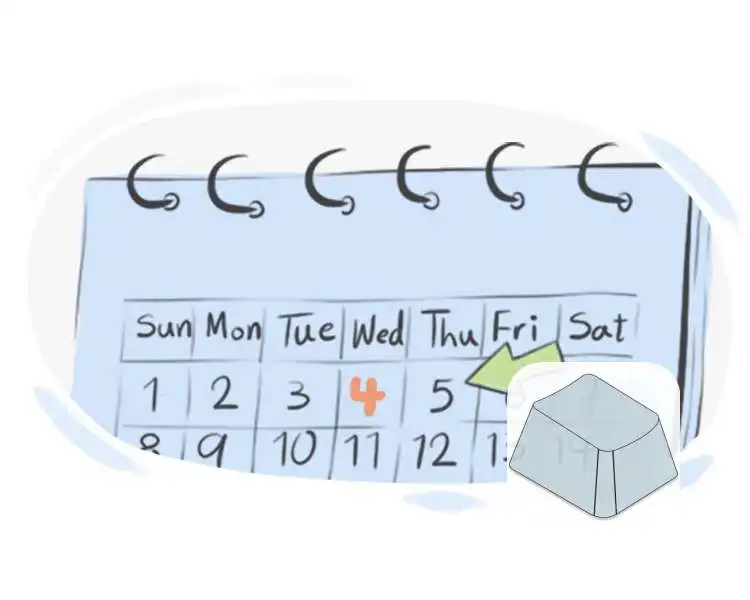 Sun Mon Tue Wed Thu Fri Sat
1 2 3 4 5
8 9 10 11 12 13 14